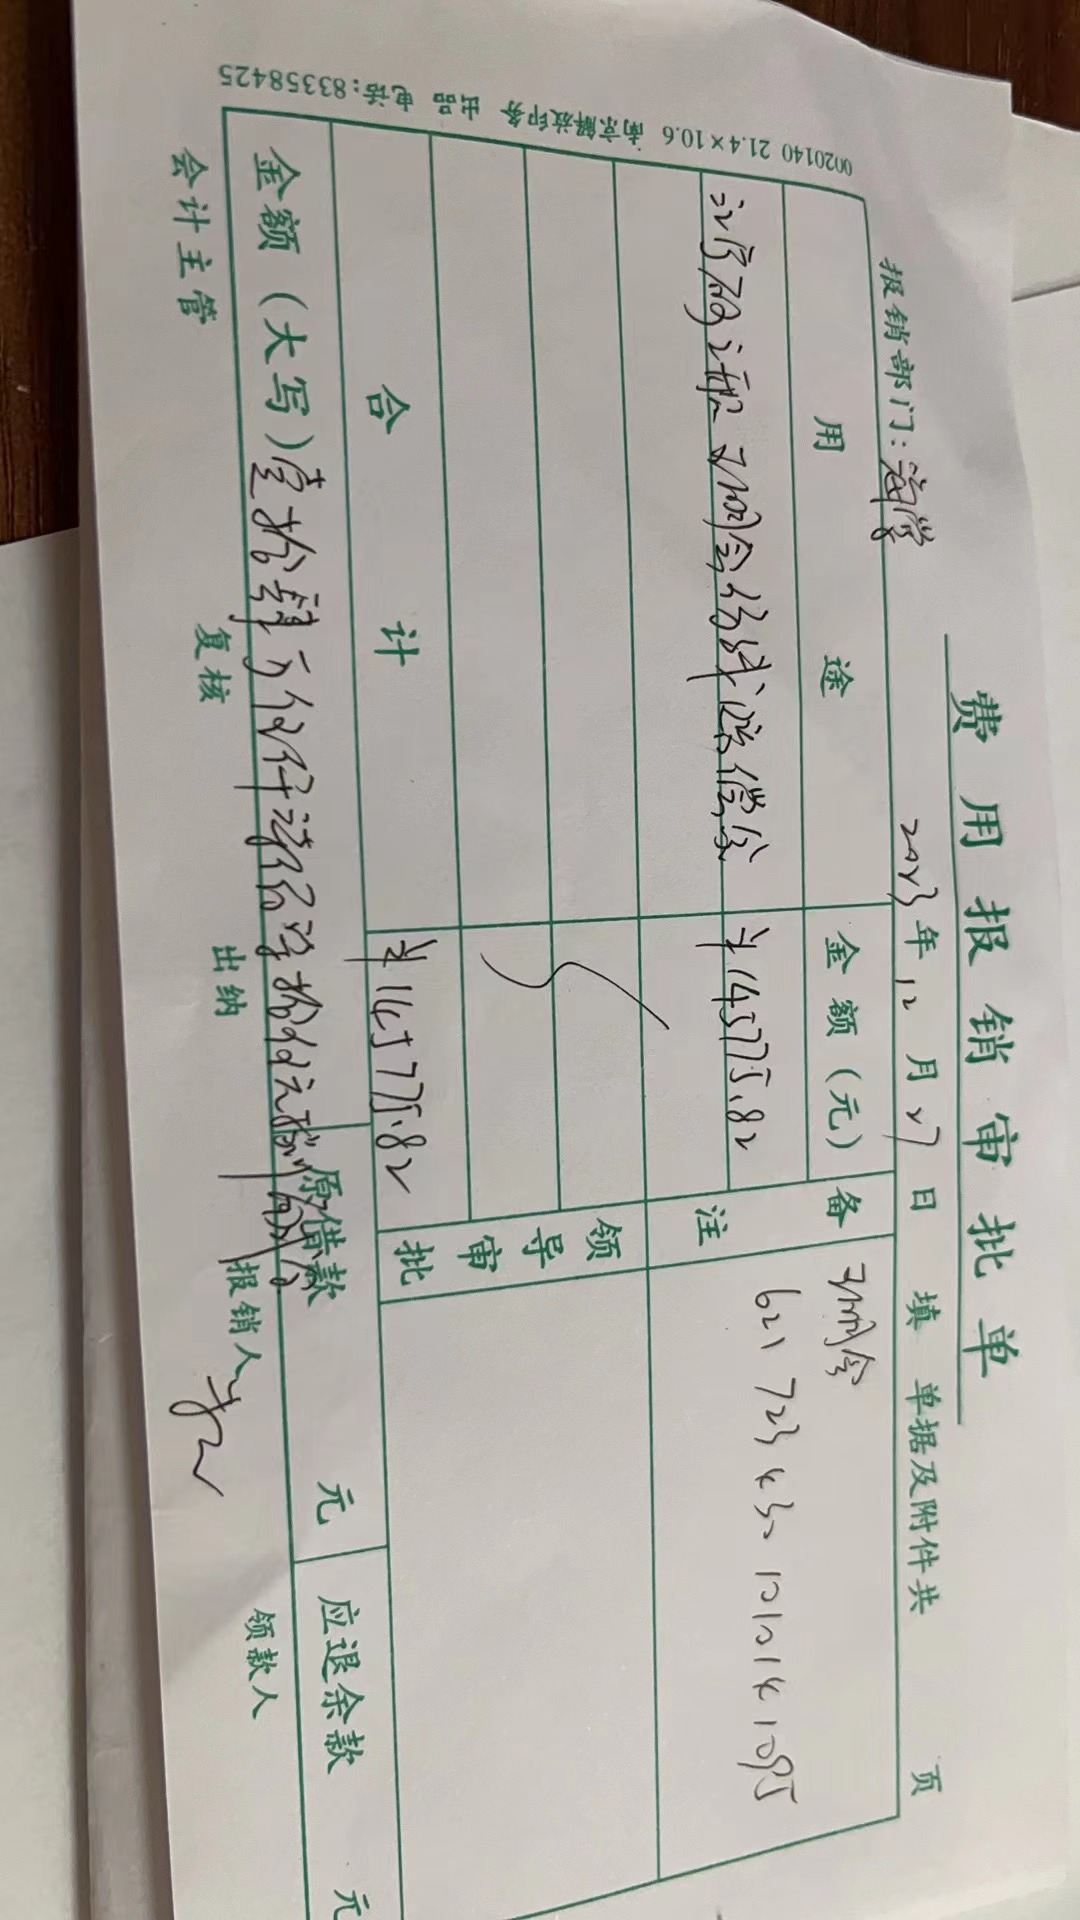 费用报销审批单
报销部门：
2023年12月27日填 单据及附件共 页
用途 金额（元） 备注
¥145775.82
621 723 4302 1010 1410 95
领导审批
合计 ¥145775.82
金额（大写）壹拾肆万伍仟柒佰柒拾伍元捌角贰分 原借款 元 应退余款 元
会计主管 复核 出纳 报销人 领款人
0020140 21.4×10.6 南京解放印务 出品 电话:83358425